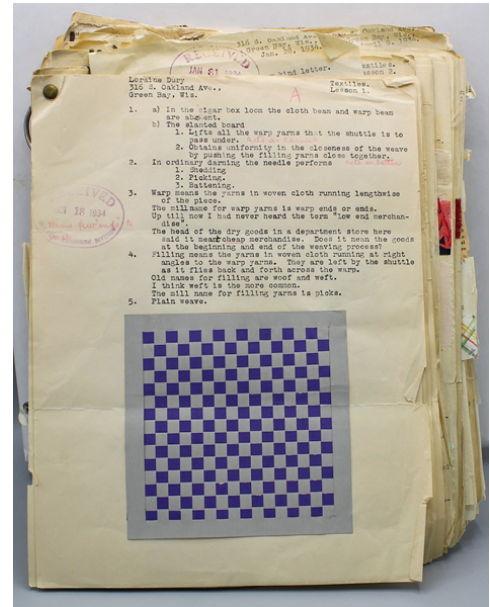 316 S. Oakland Ave.,
Green Bay, Wis.,
Jan. 28, 1934.
RECEIVED
JAN 31 1934
kind letter.
Textiles.
Lesson 2.
Loraine Dury
316 S. Oakland Ave.,
Green Bay, Wis.
A
Textiles.
Lesson 1.
1. a) In the cigar box loom the cloth beam and warp beam
are absent.
b) The slanted board
1. Lifts all the warp yarns that the shuttle is to
pass under.
2. Obtains uniformity in the closeness of the weave
by pushing the filling yarns close together.
2. In ordinary darning the needle performs
1. Shedding
2. Picking.
3. Battening.
3. Warp means the yarns in woven cloth running lengthwise
of the piece.
The mill name for warp yarns is warp ends or ends.
Up till now I had never heard the term "low end merchan-
dise".
The head of the dry goods in a department store here
said it meant cheap merchandise. Does it mean the goods
at the beginning and end of the weaving process?
4. Filling means the yarns in woven cloth running at right
angles to the warp yarns. They are left by the shuttle
as it flies back and forth across the warp.
Old names for filling are woof and weft.
I think weft is the more common.
The mill name for filling yarns is picks.
5. Plain weave.
18 1934